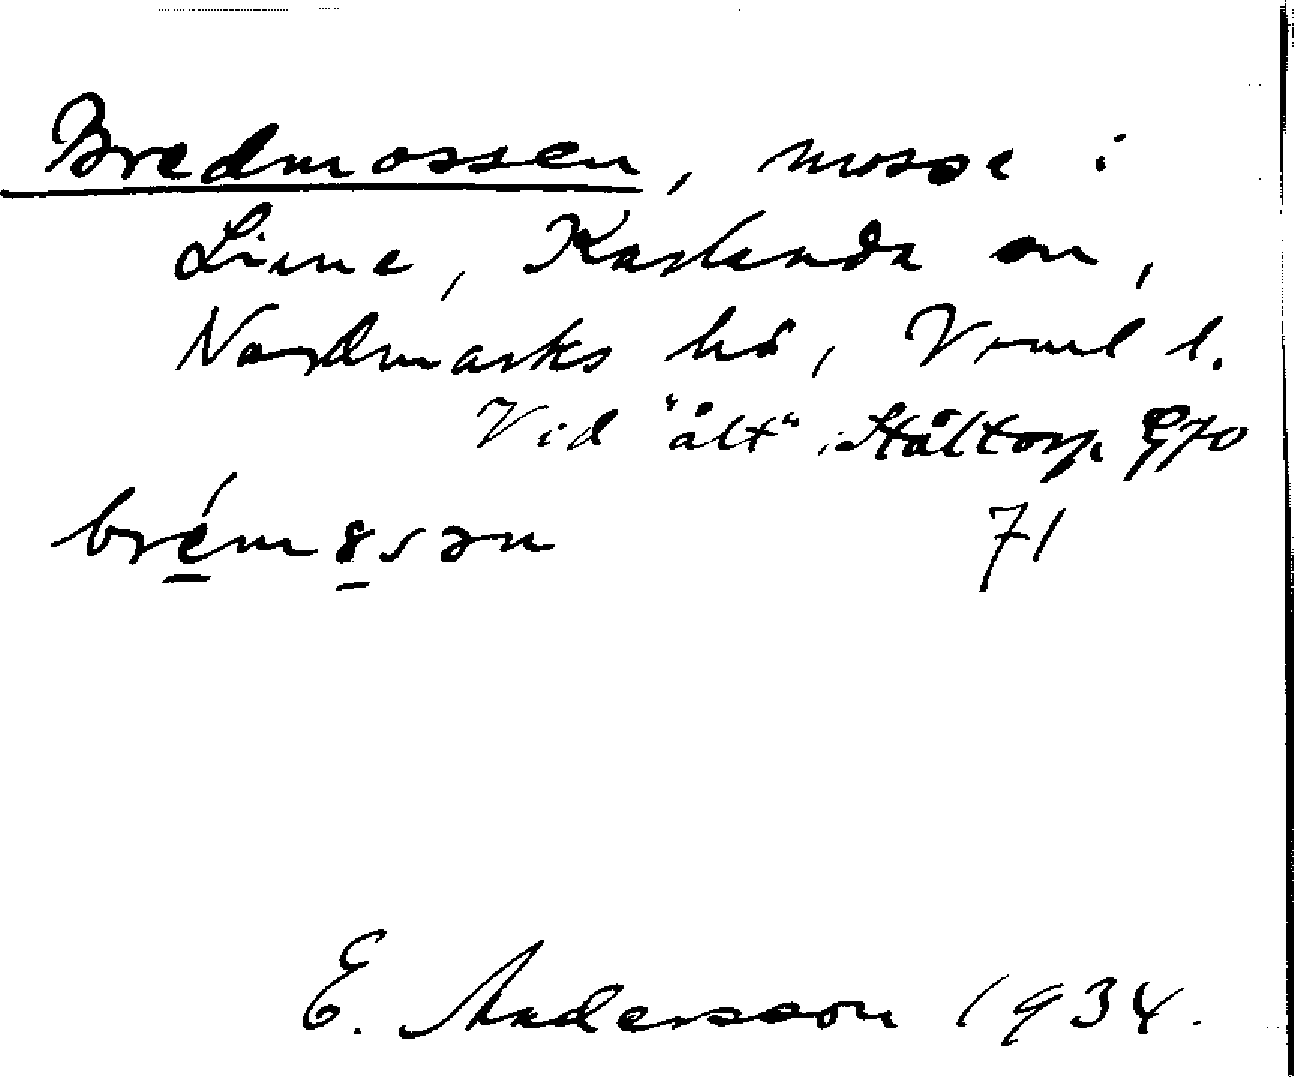 Bredmossen, mosse i
Linne, Karlanda sn,
Nordmarks hd, Vrml l.
Vid "ält" i Ståltorp 970
brémssən 71
E. Andersson 1934.